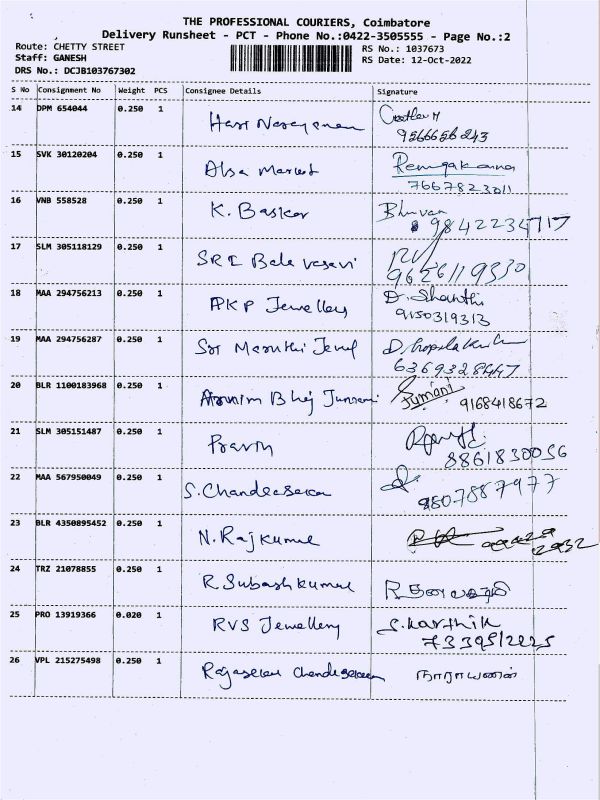 THE PROFESSIONAL COURIERS, Coimbatore
Delivery Runsheet - PCT - Phone No.:0422-3505555 - Page No.:2
Route: CHETTY STREET RS No.: 1037673
Staff: GANESH RS Date: 12-Oct-2022
DRS No.: DCJB103767302
S No Consignment No Weight PCS Consignee Details Signature
14 DPM 654044 0.250 1 Hari Narayanan
9566656243
15 SVK 30120204 0.250 1 Alsa Market
7667823011
16 VNB 558528 0.250 1 K. Baskar Bhuvan
9842234717
17 SLM 305118129 0.250 1 SRI Bala vasavi
9626119330
18 MAA 294756213 0.250 1 AKP Jewellery D. Shanthi
9150319313
19 MAA 294756287 0.250 1 Sri Maruthi Jewel
6369328447
20 BLR 1100183968 0.250 1 Jumani
9168418672
21 SLM 305151487 0.250 1
8861830056
22 MAA 567950049 0.250 1 S. Chandrasekar
9807887977
23 BLR 4350895452 0.250 1 N. Rajkumar
24 TRZ 21078855 0.250 1 R. Subash kumar
25 PRO 13919366 0.020 1 RVS Jewellery S. Karthik
26 VPL 215275498 0.250 1 Rajasekar Chandrasekaran நாராயணன்